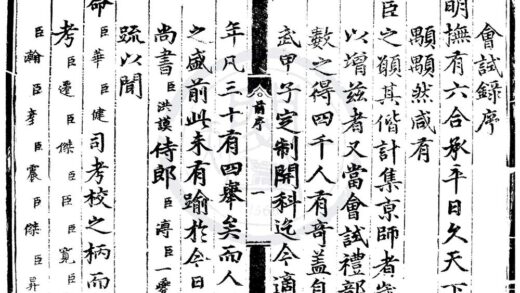 會試錄序
明撫有六合承平日久天下
顒顒然咸有
臣之願其偕計集京師者歲
以增兹者又當會試禮部
數之得四千人有奇蓋自
前序 一
武甲子定制開科迄今適
年凡三十有四舉矣而人
之盛前此未有踰於今日
尚書臣洪謨侍郎臣淳臣一夔
疏以聞
命臣華臣健司考校之柄而
考臣遷臣傑臣臣寬臣
臣瀚臣彥臣震臣傑臣昇